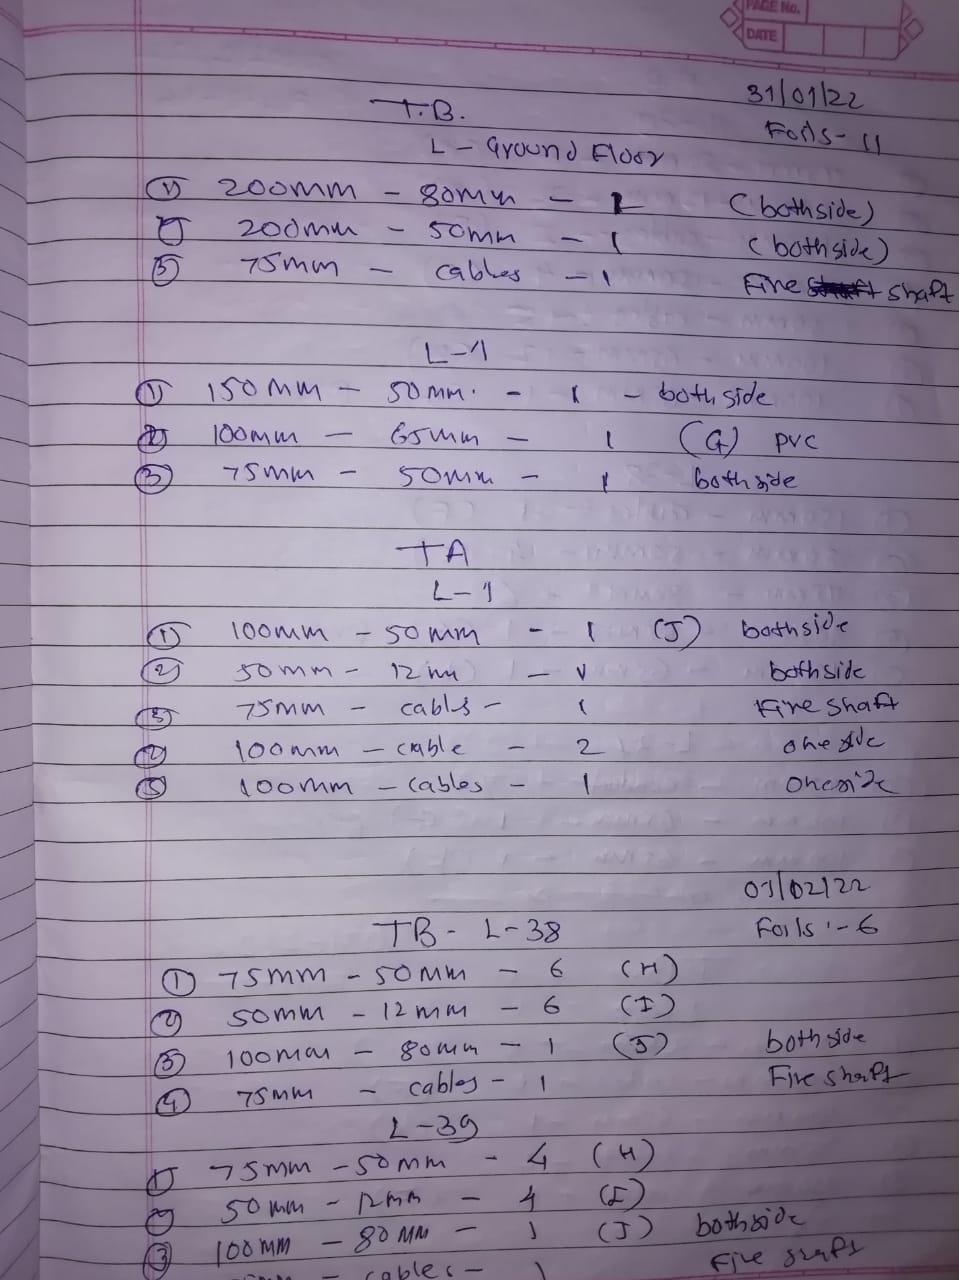 PAGE No.
DATE
31/01/22
T.B.
Foils- 11
L - Ground Floor
① 200mm - 80mm - 1 (bothside)
② 200mm - 50mm - 1 (bothside)
③ 75mm - cables - 1 Fire shaft
L-1
① 150mm - 50mm. - 1 - both side
② 100mm - 65mm - 1 (G) PVC
③ 75mm - 50mm - 1 both side
TA
L-1
① 100mm - 50mm - 1 (J) bothside
② 50mm - 12mm - bothside
③ 75mm - cables - 1 Fire shaft
④ 100mm - cable - 2 one side
⑤ 100mm - cables - 1 oneside
01/02/22
TB - L-38
Foils :- 6
① 75mm - 50mm - 6 (H)
② 50mm - 12mm - 6 (I)
③ 100mm - 80mm - 1 (J) both side
④ 75mm - cables - 1 Fire shaft
L-39
① 75mm - 50mm - 4 (H)
② 50mm - 12mm - 4 (I)
③ 100mm - 80mm - 1 (J) bothside
- cables - 1 Fire shaft